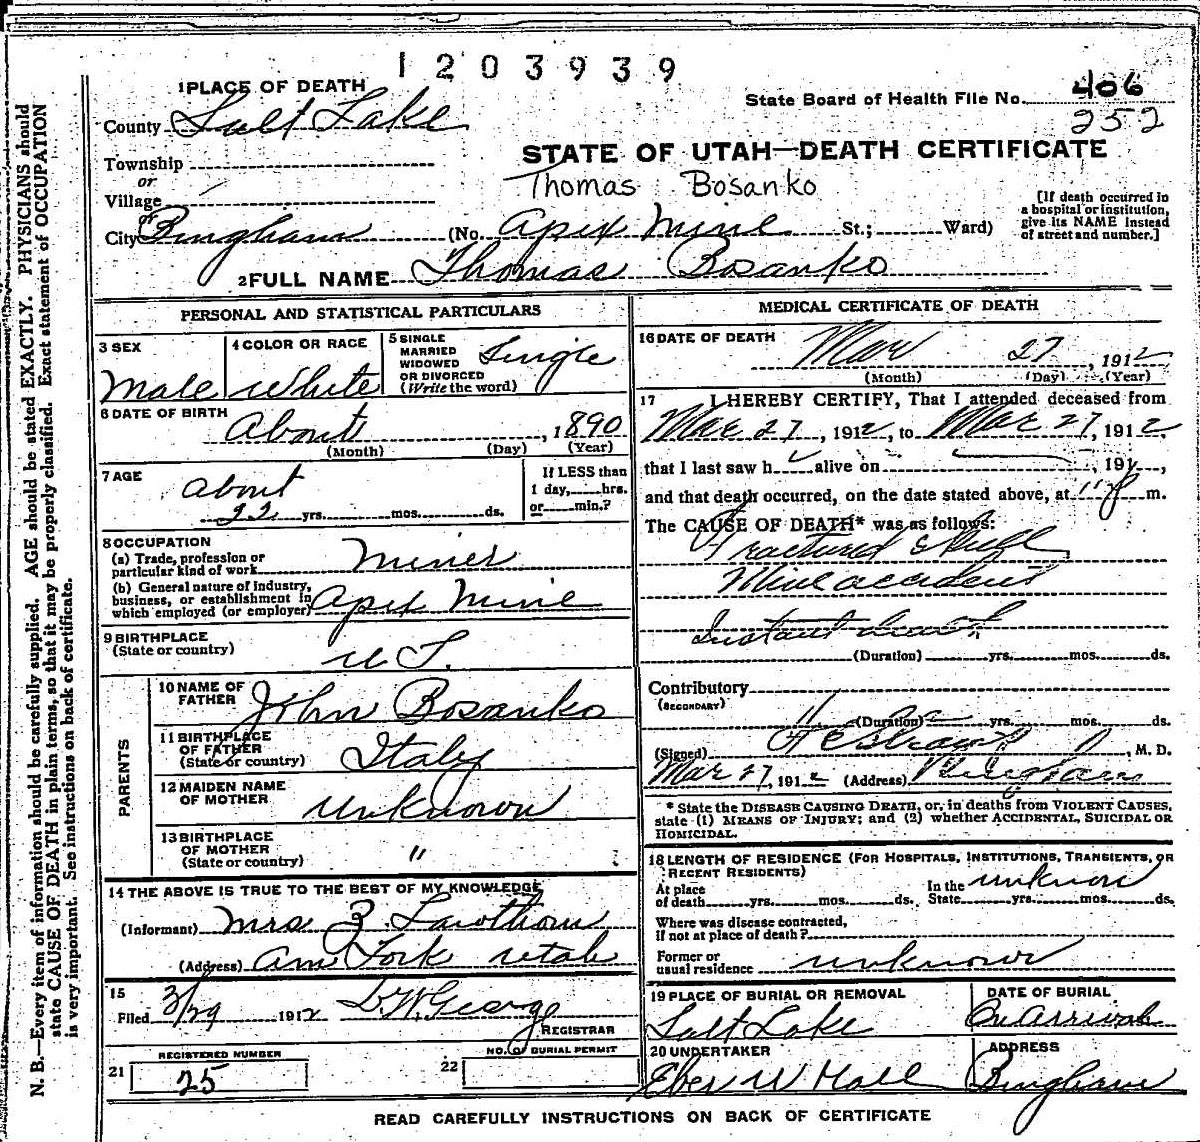 1203939
1 PLACE OF DEATH
State Board of Health File No. 406
252
County Salt Lake
STATE OF UTAH—DEATH CERTIFICATE
Township
or
Village
Thomas Bosanko
[If death occurred in
a hospital or institution,
give its NAME instead
of street and number.]
City Bingham (No. Apex Mine St.; Ward)
2 FULL NAME Thomas Bosanko
PERSONAL AND STATISTICAL PARTICULARS
3 SEX
Male
4 COLOR OR RACE
White
5 SINGLE
MARRIED
WIDOWED
OR DIVORCED
(Write the word)
Single
6 DATE OF BIRTH
About , 1890
(Month) (Day) (Year)
7 AGE
about
22 yrs. mos. ds.
If LESS than
1 day, hrs.
or min.?
8 OCCUPATION
(a) Trade, profession or
particular kind of work Miner
(b) General nature of industry,
business, or establishment in
which employed (or employer) Apex Mine
9 BIRTHPLACE
(State or country)
PARENTS
10 NAME OF
FATHER John Bosanko
11 BIRTHPLACE
OF FATHER
(State or country) Italy
12 MAIDEN NAME
OF MOTHER unknown
13 BIRTHPLACE
OF MOTHER
(State or country) "
14 THE ABOVE IS TRUE TO THE BEST OF MY KNOWLEDGE
(Informant) Mrs
(Address) Am Fork Utah
15
Filed 3/29 1912 D.W. George
REGISTRAR
REGISTERED NUMBER
21 25
NO. OF BURIAL PERMIT
22
MEDICAL CERTIFICATE OF DEATH
16 DATE OF DEATH
Mar 27 , 1912
(Month) (Day) (Year)
17 I HEREBY CERTIFY, That I attended deceased from
Mar 27, 1912, to Mar 27, 1912,
that I last saw h alive on , 191 ,
and that death occurred, on the date stated above, at m.
The CAUSE OF DEATH* was as follows:
Fractured skull
Mine accident
Instant death
(Duration) yrs. mos. ds.
Contributory
(SECONDARY)
(Duration) yrs. mos. ds.
(Signed) , M. D.
Mar 27, 1912 (Address) Bingham
* State the DISEASE CAUSING DEATH, or, in deaths from VIOLENT CAUSES,
state (1) MEANS OF INJURY; and (2) whether ACCIDENTAL, SUICIDAL OR
HOMICIDAL.
18 LENGTH OF RESIDENCE (FOR HOSPITALS, INSTITUTIONS, TRANSIENTS, OR
RECENT RESIDENTS)
At place
of death yrs. mos. ds.
In the
State yrs. mos. ds.
unknown
Where was disease contracted,
if not at place of death?
Former or
usual residence unknown
19 PLACE OF BURIAL OR REMOVAL
Salt Lake
DATE OF BURIAL
On Arrival
20 UNDERTAKER
Eber W Hall
ADDRESS
Bingham
READ CAREFULLY INSTRUCTIONS ON BACK OF CERTIFICATE
N. B.—Every item of information should be carefully supplied. AGE should be stated EXACTLY. PHYSICIANS should
state CAUSE OF DEATH in plain terms, so that it may be properly classified. Exact statement of OCCUPATION
is very important. See instructions on back of certificate.